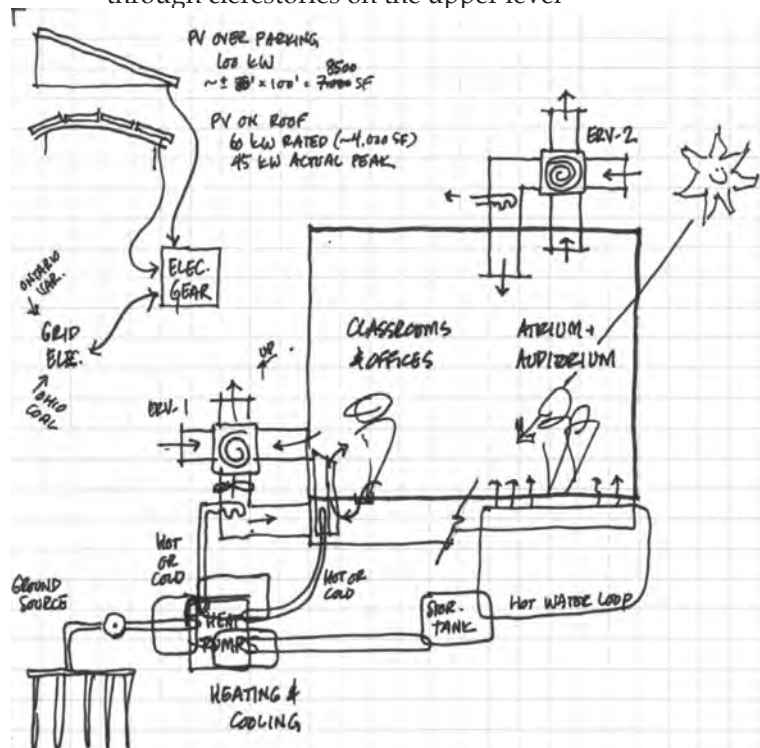 through clerestories on the upper level
PV OVER PARKING
100 KW
8500
× 100' = SF
PV ON ROOF
60 KW RATED (~4,000 SF)
45 KW ACTUAL PEAK
ERV-2
ELEC.
GEAR
ONTARIO
GRID
ELEC.
OHIO
COAL
CLASSROOMS
& OFFICES
ATRIUM +
AUDITORIUM
UP
ERV-1
HOT
OR
COLD
HOT OR
COLD
GROUND
SOURCE
HEAT
PUMP
STOR.
TANK
HOT WATER LOOP
HEATING &
COOLING